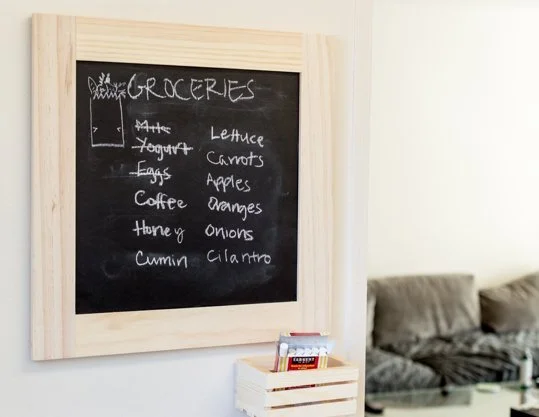 GROCERIES
Milk
Yogurt
Eggs
Coffee
Honey
Cumin
Lettuce
Carrots
Apples
Oranges
Onions
Cilantro
SARGENT